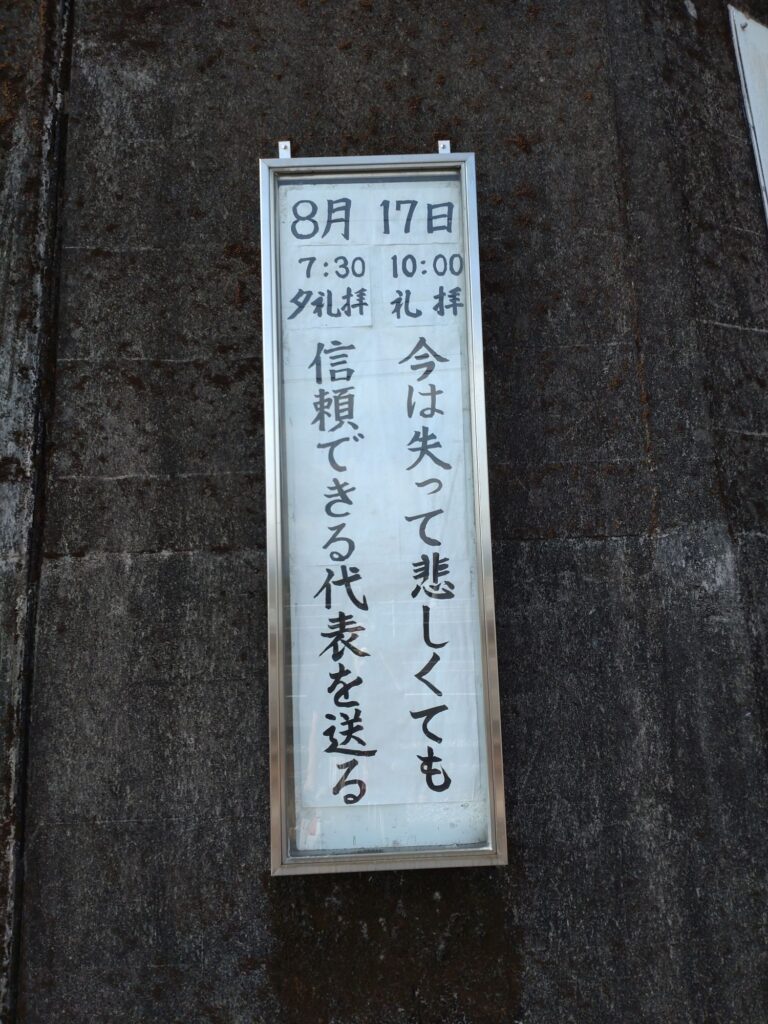 8月 17日
10:00
礼拝
7:30
夕礼拝
今は失って悲しくても
信頼できる代表を送る